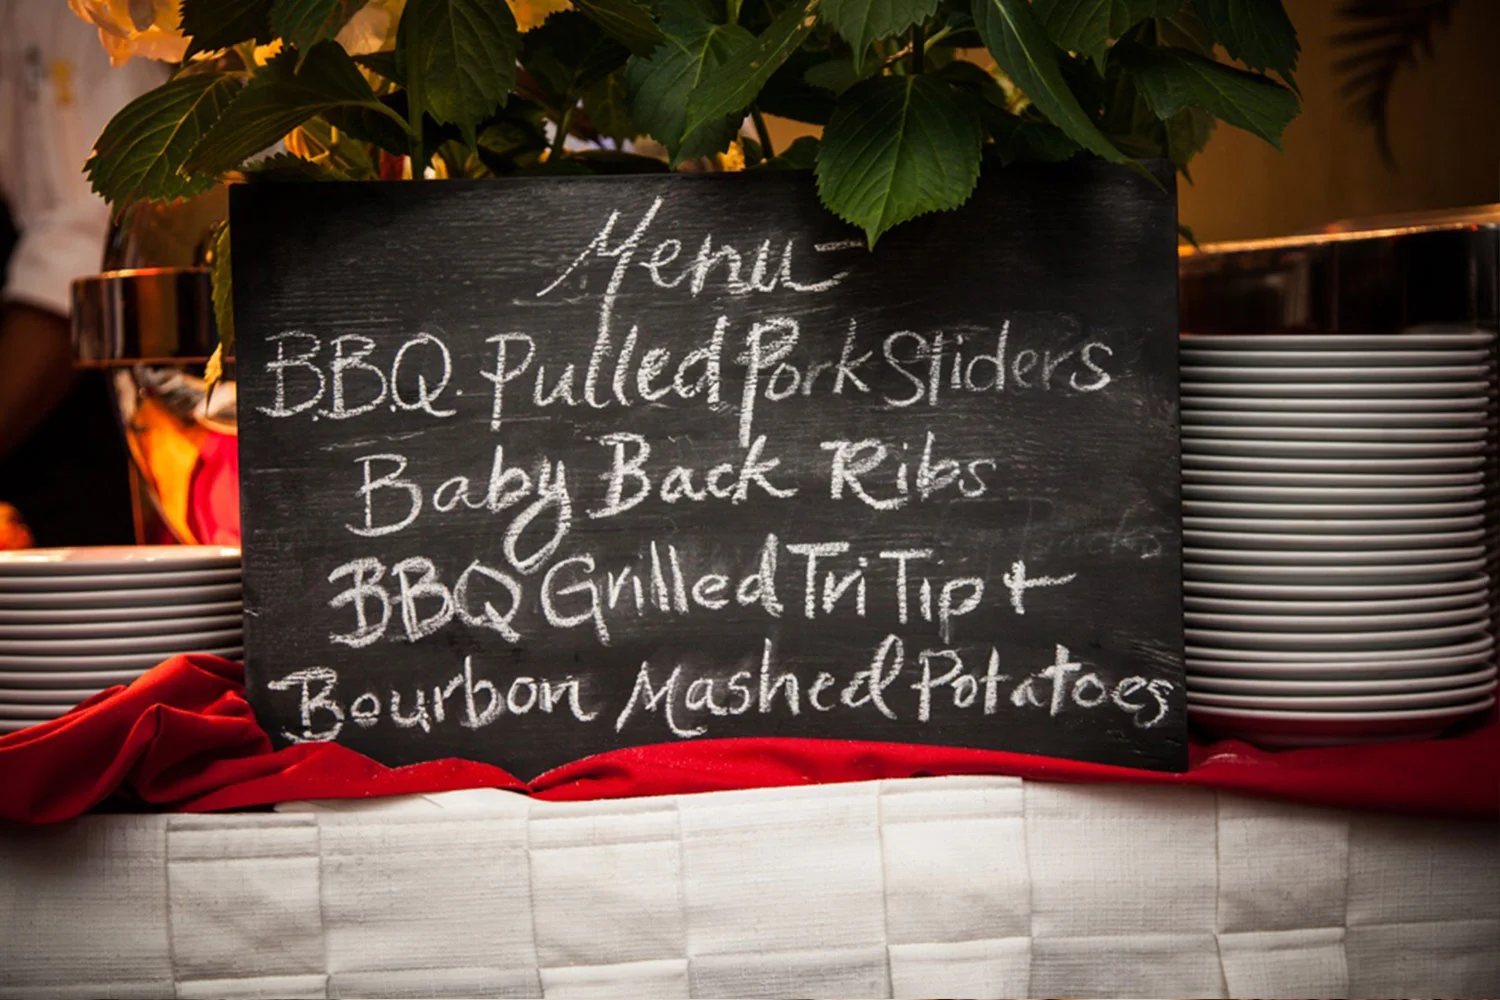 Menu
B.B.Q. Pulled Pork Sliders
Baby Back Ribs
BBQ Grilled Tri Tip +
Bourbon Mashed Potatoes